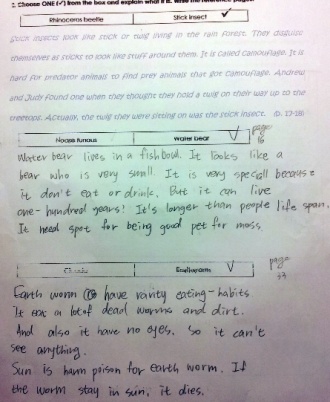 2. Choose ONE (✓) from the box and explain what it is.
Rhinoceros beetle Stick insect ✓
Stick insects look like stick or twig living in the rain forest. They disguise
themselves as sticks to look like stuff around them. It is called camouflage. It is
hard for predator animals to find prey animals that got camouflage. Andrew
and Judy found one when they thought they hold a twig on their way up to the
treetops. Actually, the twig they were sitting on was the stick insect. (p. 17-18)
Water bear ✓ page
Water bear lives in a fishbowl. It looks like a
bear who is very small. It is very special because
it don't eat or drink. But it can live
one-hundred years! It's longer than people life span.
It need spot for being good pet for moss.
Earthworm ✓ page
Earth worm have eating-habits
It eat a lot of dead worms and dirt.
And also it have no eyes. So it can't
see anything.
Sun is poison for earth worm. If
the worm stay in sun, it dies.